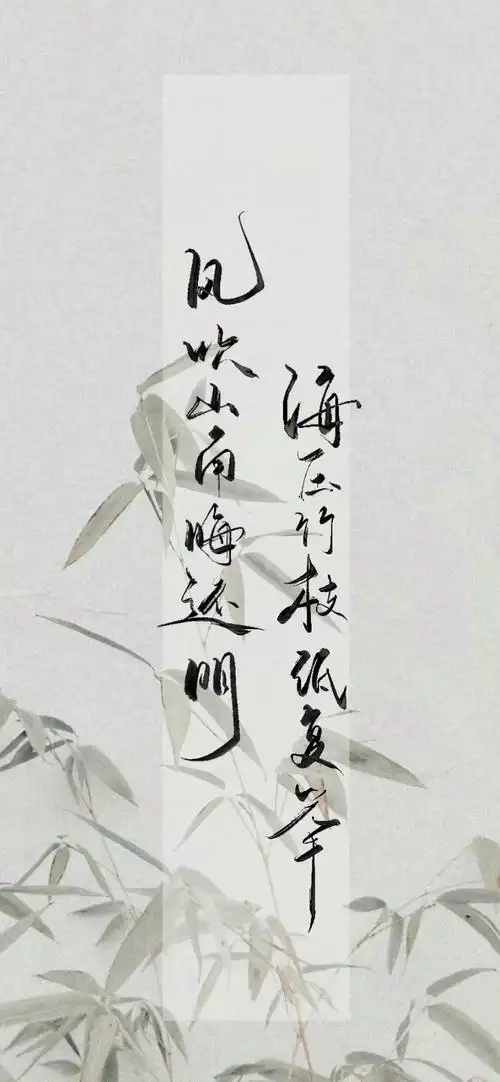 海压竹枝低复举
风吹山角晦还明